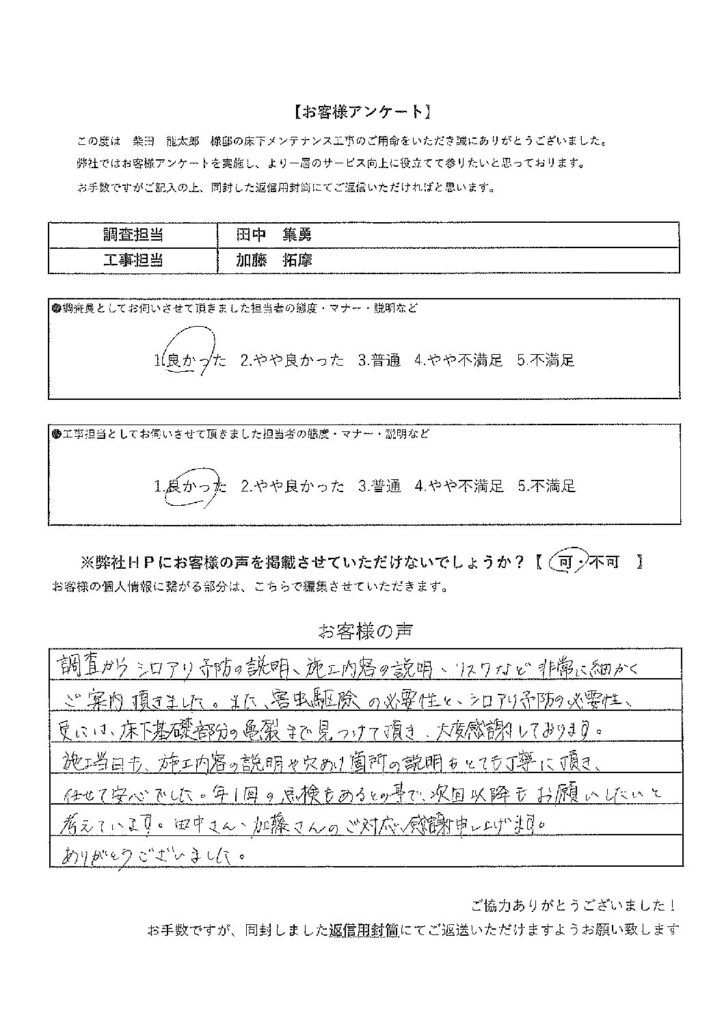 【お客様アンケート】
この度は 柴田 龍太郎 様邸の床下メンテナンス工事のご用命をいただき誠にありがとうございました。
弊社ではお客様アンケートを実施し、より一層のサービス向上に役立てて参りたいと思っております。
お手数ですがご記入の上、同封した返信用封筒にてご返信いただければと思います。
調査担当 田中 隼勇
工事担当 加藤 拓摩
●調査員としてお伺いさせて頂きました担当者の態度・マナー・説明など
1.良かった 2.やや良かった 3.普通 4.やや不満足 5.不満足
●工事担当としてお伺いさせて頂きました担当者の態度・マナー・説明など
1.良かった 2.やや良かった 3.普通 4.やや不満足 5.不満足
※弊社HPにお客様の声を掲載させていただけないでしょうか？【 可・不可 】
お客様の個人情報に繋がる部分は、こちらで編集させていただきます。
お客様の声
調査からシロアリ予防の説明、施工内容の説明、リスクなど非常に細かく
ご案内頂きました。また、害虫駆除の必要性と、シロアリ予防の必要性、
更には、床下基礎部分の亀裂まで見つけて頂き、大変感謝しております。
施工当日も、施工内容の説明や穴あけ箇所の説明もとても丁寧に頂き、
任せて安心でした。年1回の点検もあるとの事で、次回以降もお願いしたいと
考えています。田中さん、加藤さんのご対応、感謝申し上げます。
ありがとうございました。
ご協力ありがとうございました！
お手数ですが、同封しました返信用封筒にてご返送いただけますようお願い致します